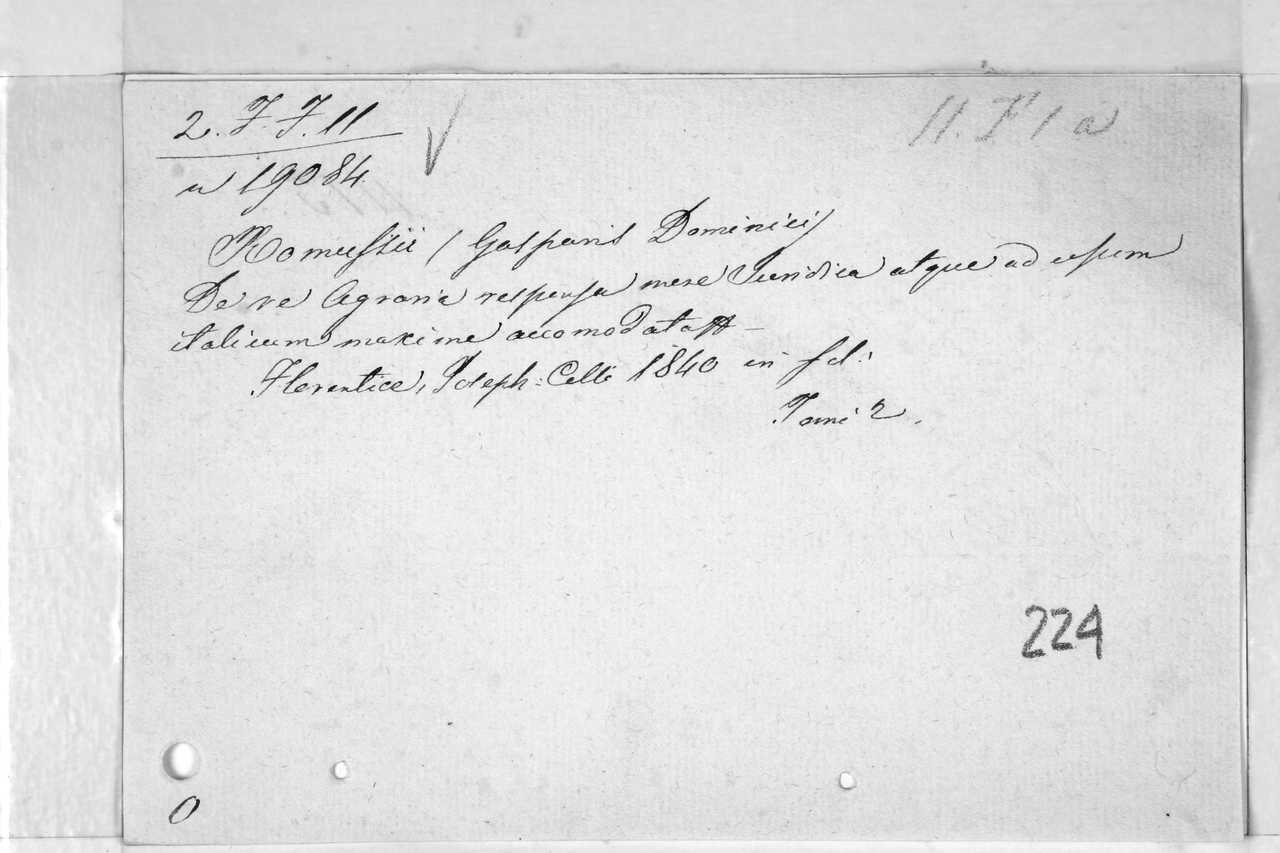 2. F. F. 11
n 19084
11. F 1 a
Romussii (Gasparis Dominici)
De re Agraria responsa mere Juridica atque ad usum
italicum maxime accomodata
Florentiae, Joseph: Celli 1840 in fol:
Tomi 2.
224
0